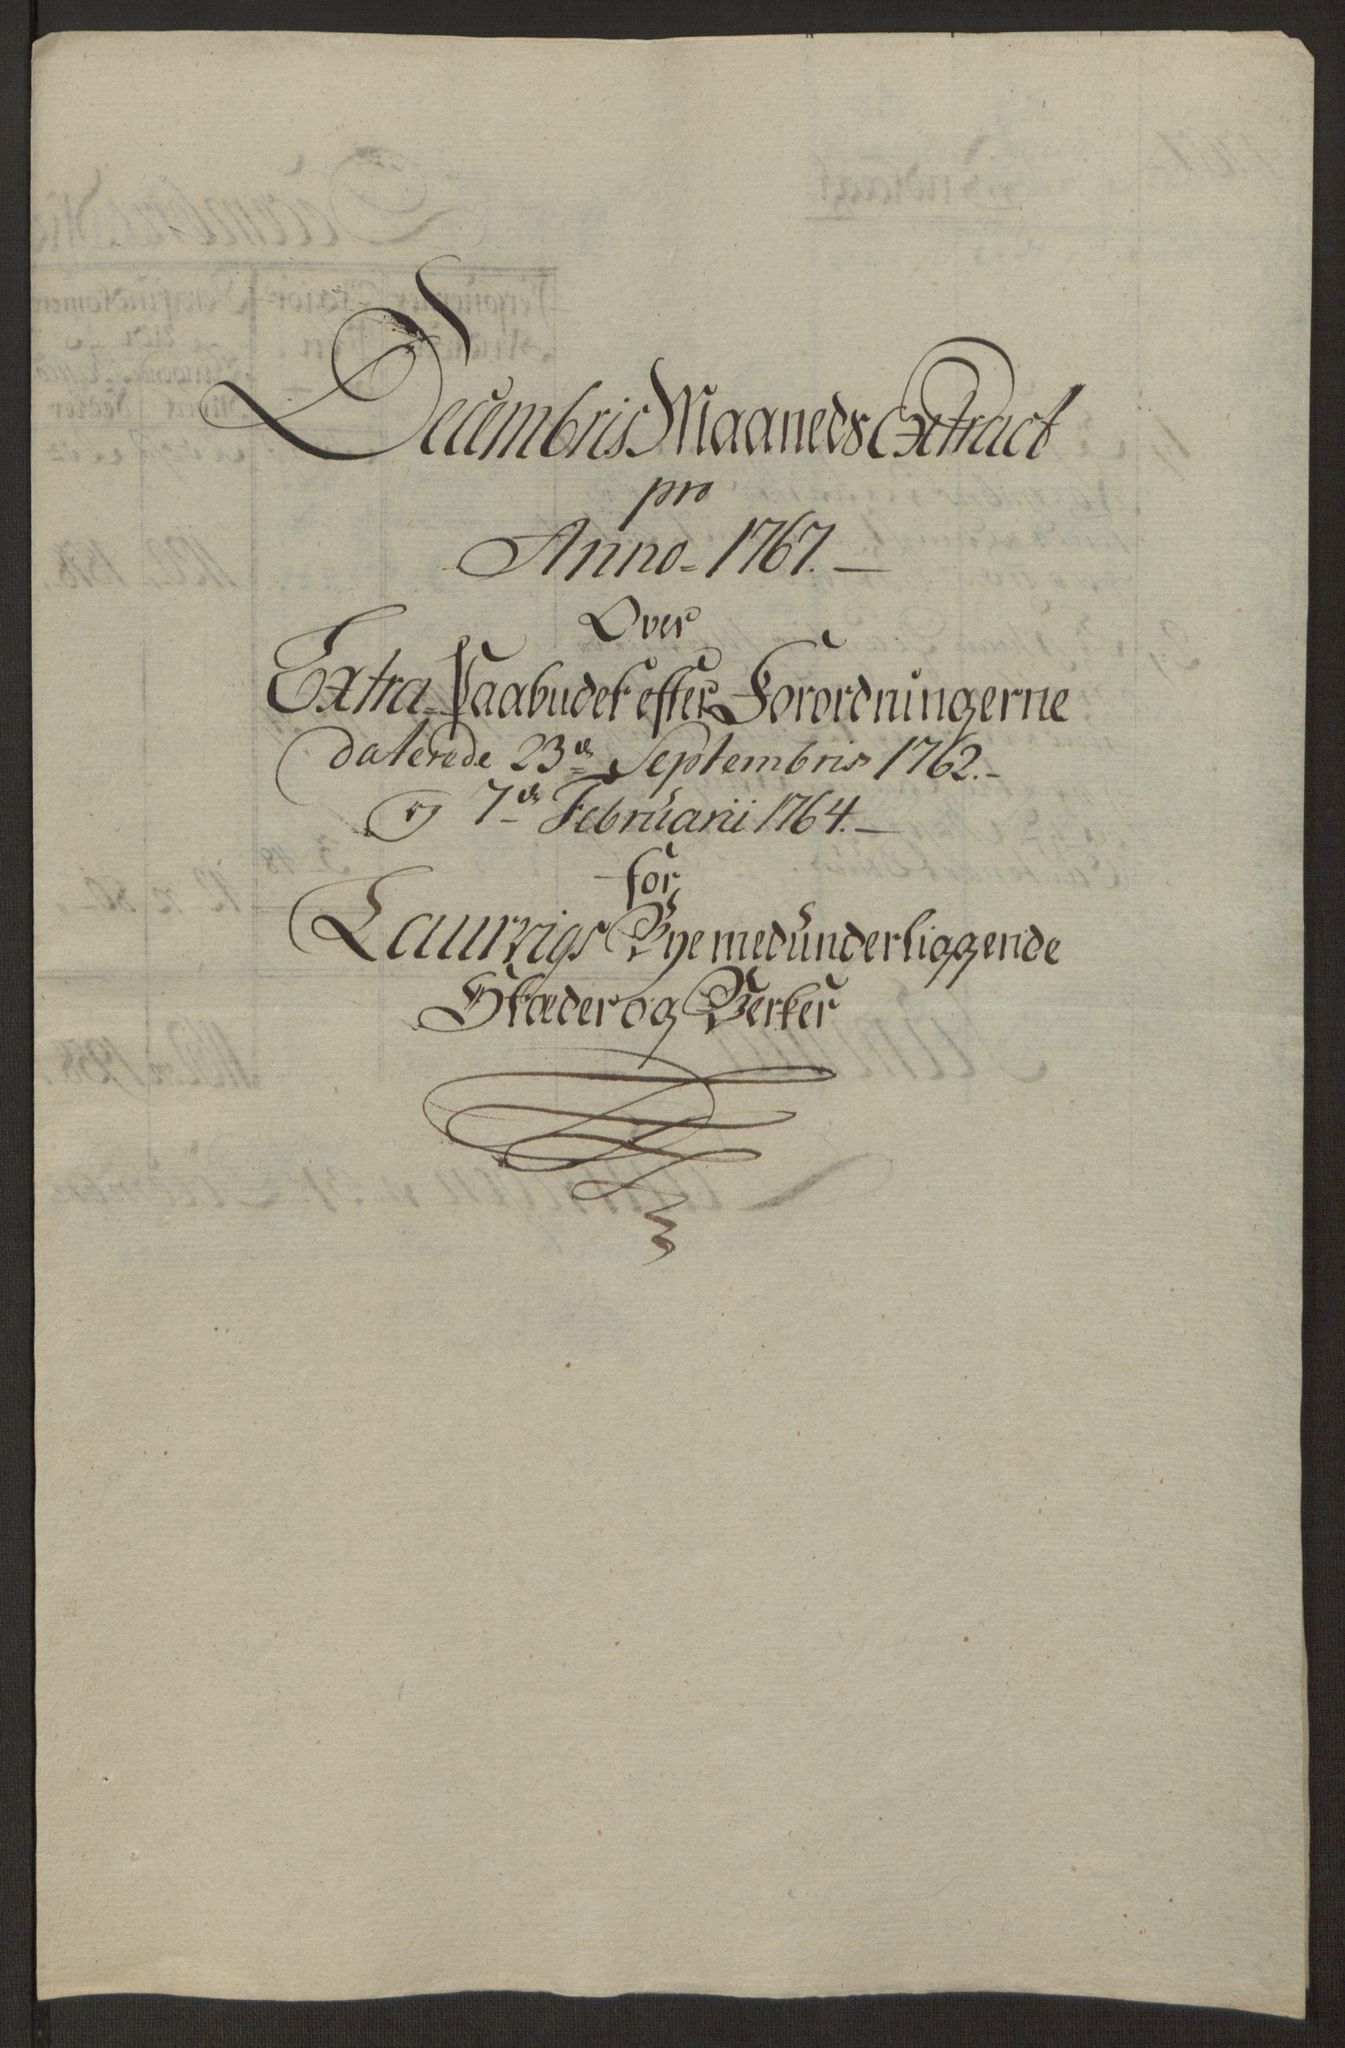 Decembris Maaneds Extract
pro
Anno 1767.
Over
Extra Paabudet efter Forordningerne
daterede 23de Septembris 1762.
og 7de Februarii 1764.
for
Laurvigs Bye med underliggende
Stæder og Verker